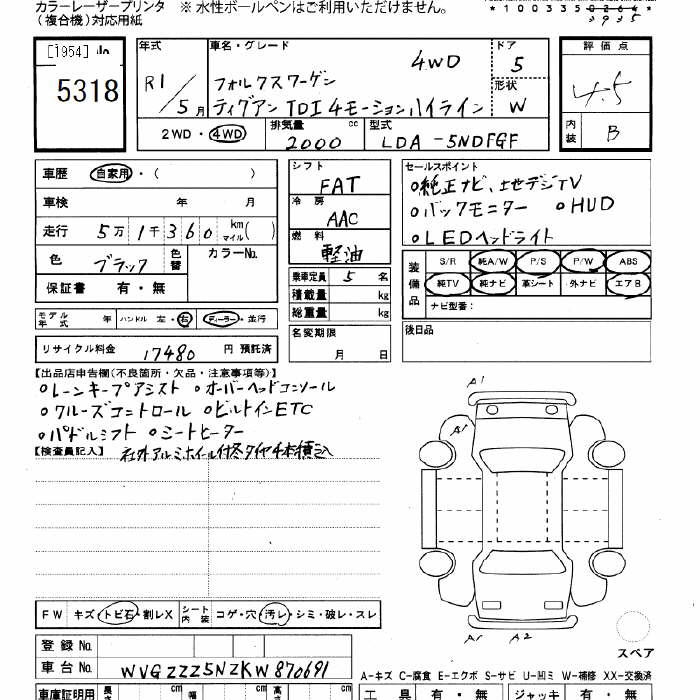 カラーレーザープリンタ ※ 水性ボールペンはご利用いただけません。
(複合機)対応用紙
*100335
3935
[1954]
5318
年式 R1/5月
車名・グレード 4WD
フォルクスワーゲン
ティグアン TDI 4モーションハイライン
ドア 5
形状 W
評価点 4.5
内装 B
2WD・4WD
排気量 2000 cc
型式 LDA-5NDFGF
車歴 自家用・( )
車検 年 月
走行 5万1千360 km マイル( )
色 ブラック 色替 カラーNo.
保証書 有・無
シフト FAT
冷房 AAC
燃料 軽油
乗車定員 5 名
積載量 kg
総重量 kg
名変期限 月 日
セールスポイント
○純正ナビ、地デジTV
○バックモニター ○HUD
○LEDヘッドライト
装備品 S/R 純A/W P/S P/W ABS
純TV 純ナビ 革シート 外ナビ エアB
ナビ型番:
後日品
モデル年式 年 ハンドル 左・右 ディーラー・並行
リサイクル料金 17480 円 預託済
【出品店申告欄(不良箇所・欠品・注意事項等)】
○レーンキープアシスト ○オーバーヘッドコンソール
○クルーズコントロール ○ビルトインETC
○パドルシフト ○シートヒーター
【検査員記入】 社外アルミホイール付冬タイヤ4本積込
A1
A1
A1 A2
スペア
FW キズ・トビ石・割レX シート内装 コゲ・穴・汚レ・シミ・破レ・スレ
登録No.
車台No. WVGZZZ5NZKW870691
A-キズ C-腐食 E-エクボ S-サビ U-凹ミ W-補修 XX-交換済
車庫証明用 長さ cm 幅 cm 高さ cm
工具 有・無 ジャッキ 有・無